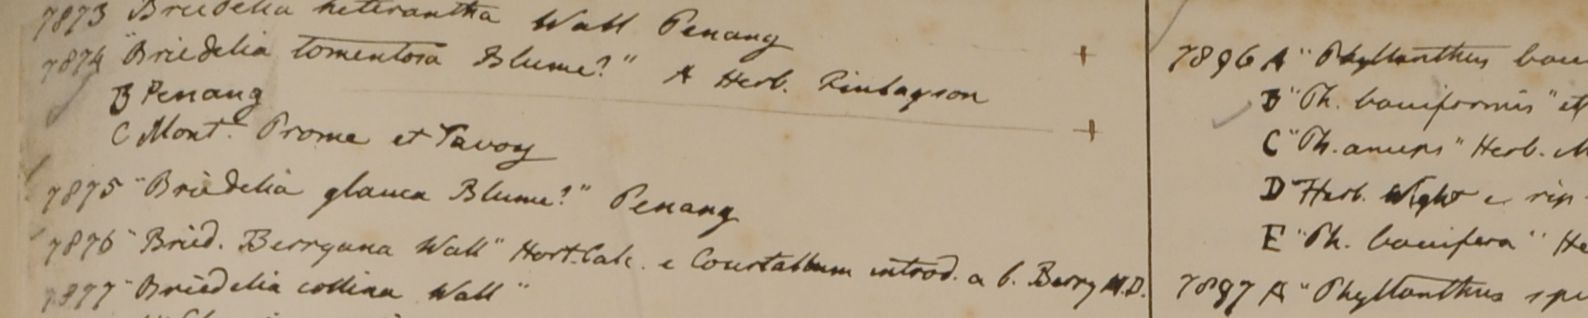 7873 Briedelia heterantha Wall Penang
7874 "Briedelia tomentosa Blume?" A Herb. Finlayson +
B Penang
C Mont. Prome et Tavoy +
7875 "Briedelia glauca Blume?" Penang
7876 "Bried. Berryana Wall" Hort. Calc. e Courtallum introd. a b. Berry M.D.
7877 "Briedelia collina Wall"
7896 A "Phyllanthus
B "Ph. bacciformis" et
C "Ph. anceps" Herb.
D Herb. Wight e
E "Ph. baccifera"
7897 A "Phyllanthus